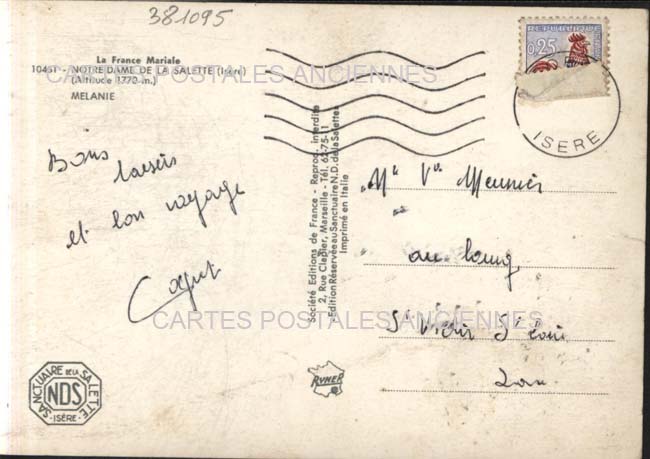 381095
La France Mariale
10451 NOTRE-DAME DE LA SALETTE (Isère)
(Altitude 1770 m.)
MELANIE
CARTES POSTALES ANCIENNES
Bons
baisers
et bon voyage
Société Editions de France - Reprod. interdite
2, Rue Clapier, Marseille - Tél. 62-75-11
Edition Réservée au Sanctuaire N.D. de la Salette
Imprimé en Italie
0,25
ISERE
Vve Meunier
au bourg
CARTES POSTALES ANCIENNES
St Victor St
SANCTUAIRE DE LA SALETTE
NDS
ISÈRE
RYNER